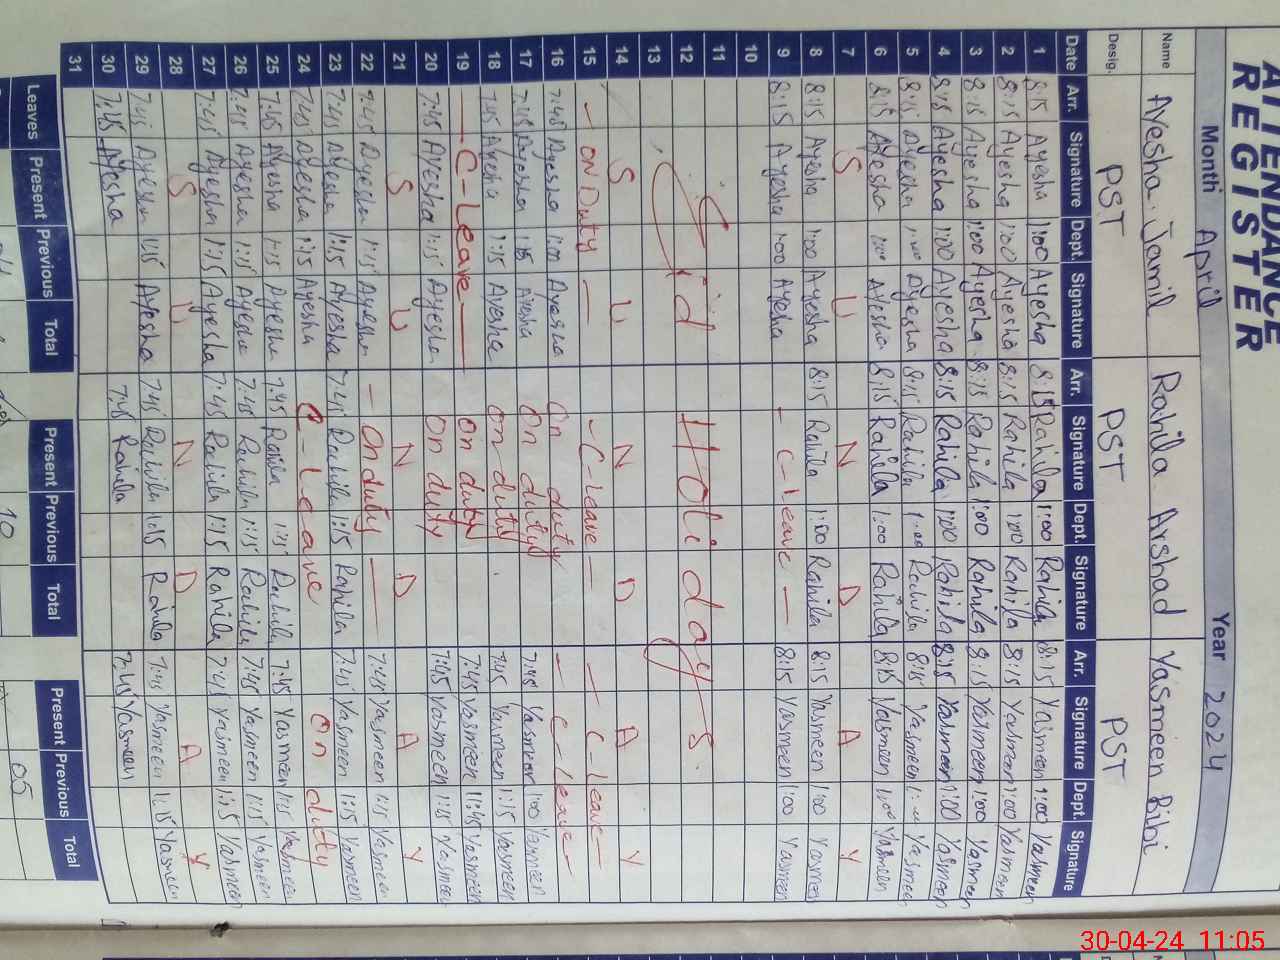 ATTENDANCE
REGISTER
Month April Year 2024
Name Ayesha Jamil Rahila Arshad Yasmeen Bibi
Desig. PST PST PST
Date Arr. Signature Dept. Signature Arr. Signature Dept. Signature Arr. Signature Dept. Signature
1 8:15 Ayesha 1:00 Ayesha 8:15 Rahila 1:00 Rahila 8:15 Yasmeen 1:00 Yasmeen
2 8:15 Ayesha 1:00 Ayesha 8:15 Rahila 1:00 Rahila 8:15 Yasmeen 1:00 Yasmeen
3 8:15 Ayesha 1:00 Ayesha 8:15 Rahila 1:00 Rahila 8:15 Yasmeen 1:00 Yasmeen
4 8:15 Ayesha 1:00 Ayesha 8:15 Rahila 1:00 Rahila 8:15 Yasmeen 1:00 Yasmeen
5 8:15 Ayesha 1:00 Ayesha 8:15 Rahila 1:00 Rahila 8:15 Yasmeen Yasmeen
6 8:15 Ayesha 1:00 Ayesha 8:15 Rahila 1:00 Rahila 8:15 Yasmeen 1:00 Yasmeen
7 S U N D A Y
8 8:15 Ayesha 1:00 Ayesha 8:15 Rahila 1:00 Rahila 8:15 Yasmeen 1:00 Yasmeen
9 8:15 Ayesha 1:00 Ayesha - C-Leave - 8:15 Yasmeen 1:00 Yasmeen
10
11
12 Eid Holidays
13
14 S U N D A Y
15 - ON Duty - - C-Leave - - C-Leave -
16 7:45 Ayesha 1:00 Ayesha On duty - C-Leave -
17 7:45 Ayesha 1:15 Ayesha On duty 7:45 Yasmeen 1:00 Yasmeen
18 7:45 Ayesha 1:15 Ayesha on duty 7:45 Yasmeen 1:15 Yasmeen
19 - C-Leave - on duty 7:45 Yasmeen 11:45 Yasmeen
20 7:45 Ayesha 1:15 Ayesha On duty 7:45 Yasmeen 1:15 Yasmeen
21 S U N D A Y
22 7:45 Ayesha 1:15 Ayesha - On duty - 7:45 Yasmeen 1:15 Yasmeen
23 7:45 Ayesha 1:15 Ayesha 7:45 Rahila 1:15 Rahila 7:45 Yasmeen 1:15 Yasmeen
24 7:45 Ayesha 1:15 Ayesha C-Leave on duty
25 7:45 Ayesha 1:15 Ayesha 7:45 Rahila 1:15 Rahila 7:45 Yasmeen 1:15 Yasmeen
26 7:45 Ayesha 1:15 Ayesha 7:45 Rahila 1:15 Rahila 7:45 Yasmeen 1:15 Yasmeen
27 7:45 Ayesha 1:15 Ayesha 7:45 Rahila 1:15 Rahila 7:45 Yasmeen 1:15 Yasmeen
28 S U N D A Y
29 7:45 Ayesha 1:15 Ayesha 7:45 Rahila 1:15 Rahila 7:45 Yasmeen 1:15 Yasmeen
30 7:45 Ayesha 7:45 Rahila 7:45 Yasmeen
31
Leaves Present Previous Total Present Previous Total Present Previous Total
10 05
30-04-24 11:05